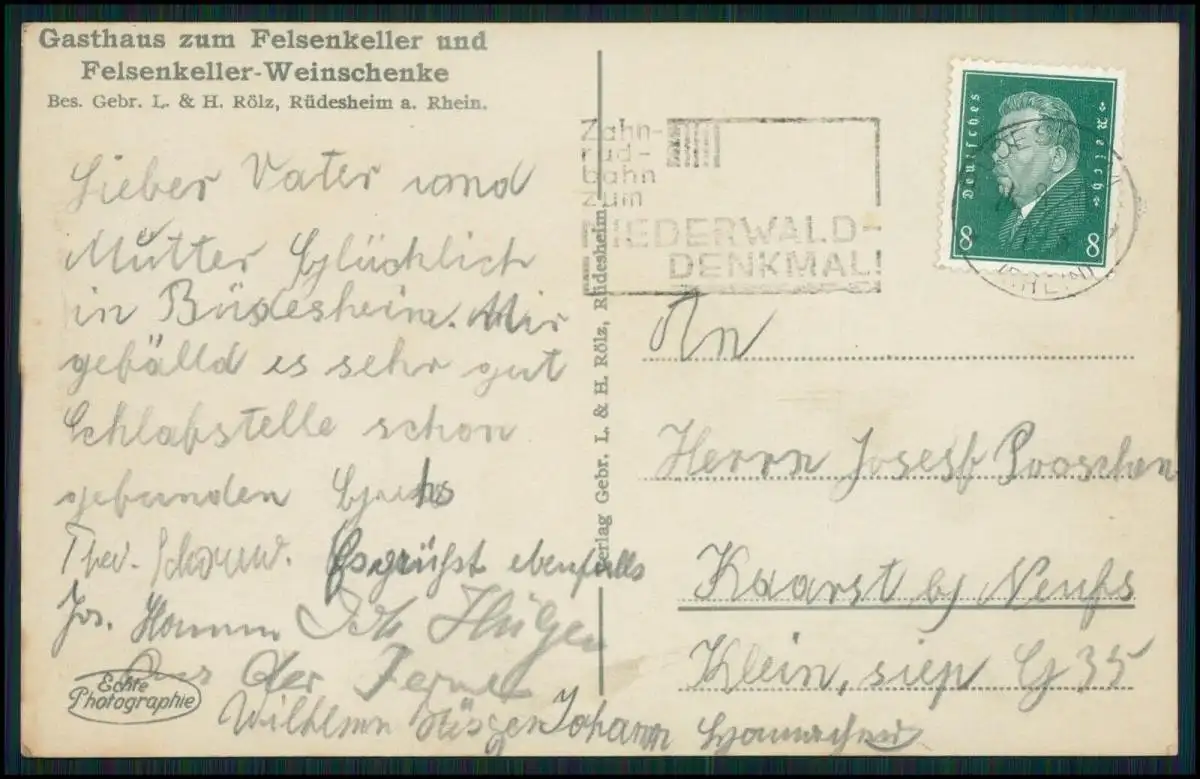 Gasthaus zum Felsenkeller und
Felsenkeller-Weinschenke
Bes. Gebr. L. & H. Rölz, Rüdesheim a. Rhein.
Lieber Vater und
Mutter Glücklich
in Büdesheim. Mir
gefälld es sehr gut
Schlafstelle schon
gefunden
Es grüßt ebenfalls
Jos. Hamm
Aus der Ferne
Wilhlem Hüsgen Johann
Echte
Photographie
Verlag Gebr. L. & H. Rölz, Rüdesheim
Zahn-
rad-
bahn
zum
NIEDERWALD-
DENKMAL!
Deutsches Reich
8 8
(RHEIN)
An
Herrn Josesf
Kaarst bj Neufs
Klein, siep G 35